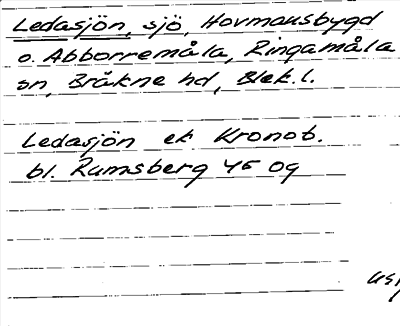 Ledasjön, sjö, Hovmansbygd
o. Abborremåla, Ringamåla
sn, Bräkne hd, Blek. l.
Ledasjön ek Kronob.
bl. Ramsberg 45 09